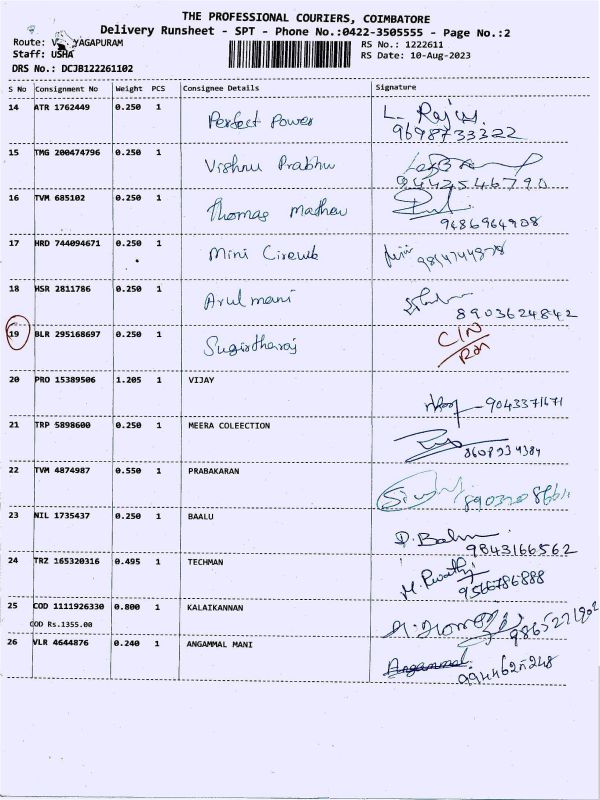 THE PROFESSIONAL COURIERS, COIMBATORE
Delivery Runsheet - SPT - Phone No.:0422-3505555 - Page No.:2
Route: V YAGAPURAM RS No.: 1222611
Staff: USHA RS Date: 10-Aug-2023
DRS No.: DCJB122261102
S No Consignment No Weight PCS Consignee Details Signature
14 ATR 1762449 0.250 1 Perfect Power
9698733322
15 TMG 200474796 0.250 1 Vishnu Prabhu
9442546790
16 TVM 685102 0.250 1 Thomas Mathew
9486964908
17 HRD 744094671 0.250 1 Mini
18 HSR 2811786 0.250 1 Arul mani
8903624842
19 BLR 295168697 0.250 1 Sugirtharaj
20 PRO 15389506 1.205 1 VIJAY
9043371671
21 TRP 5898600 0.250 1 MEERA COLEECTION
22 TVM 4874987 0.550 1 PRABAKARAN
23 NIL 1735437 0.250 1 BAALU
9843166562
24 TRZ 165320316 0.495 1 TECHMAN
9566786888
25 COD 1111926330 0.800 1 KALAIKANNAN
COD Rs.1355.00
26 VLR 4644876 0.240 1 ANGAMMAL MANI
Angammal
9944625248